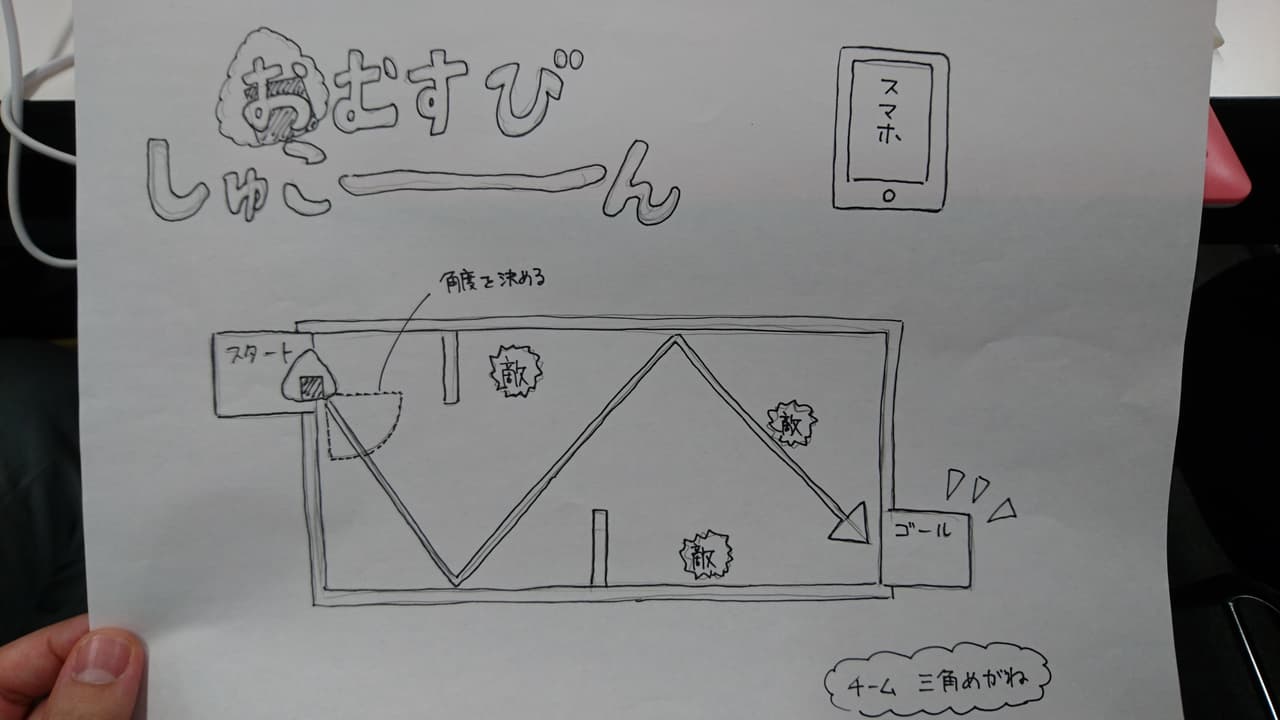 おむすび
しゅこーん
スマホ
角度を決める
スタート
敵
敵
敵
ゴール
チーム 三角めがね